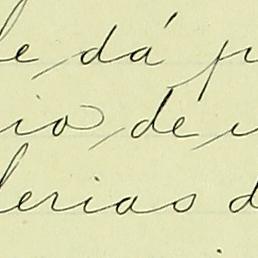 le dá p
io de
lerias d